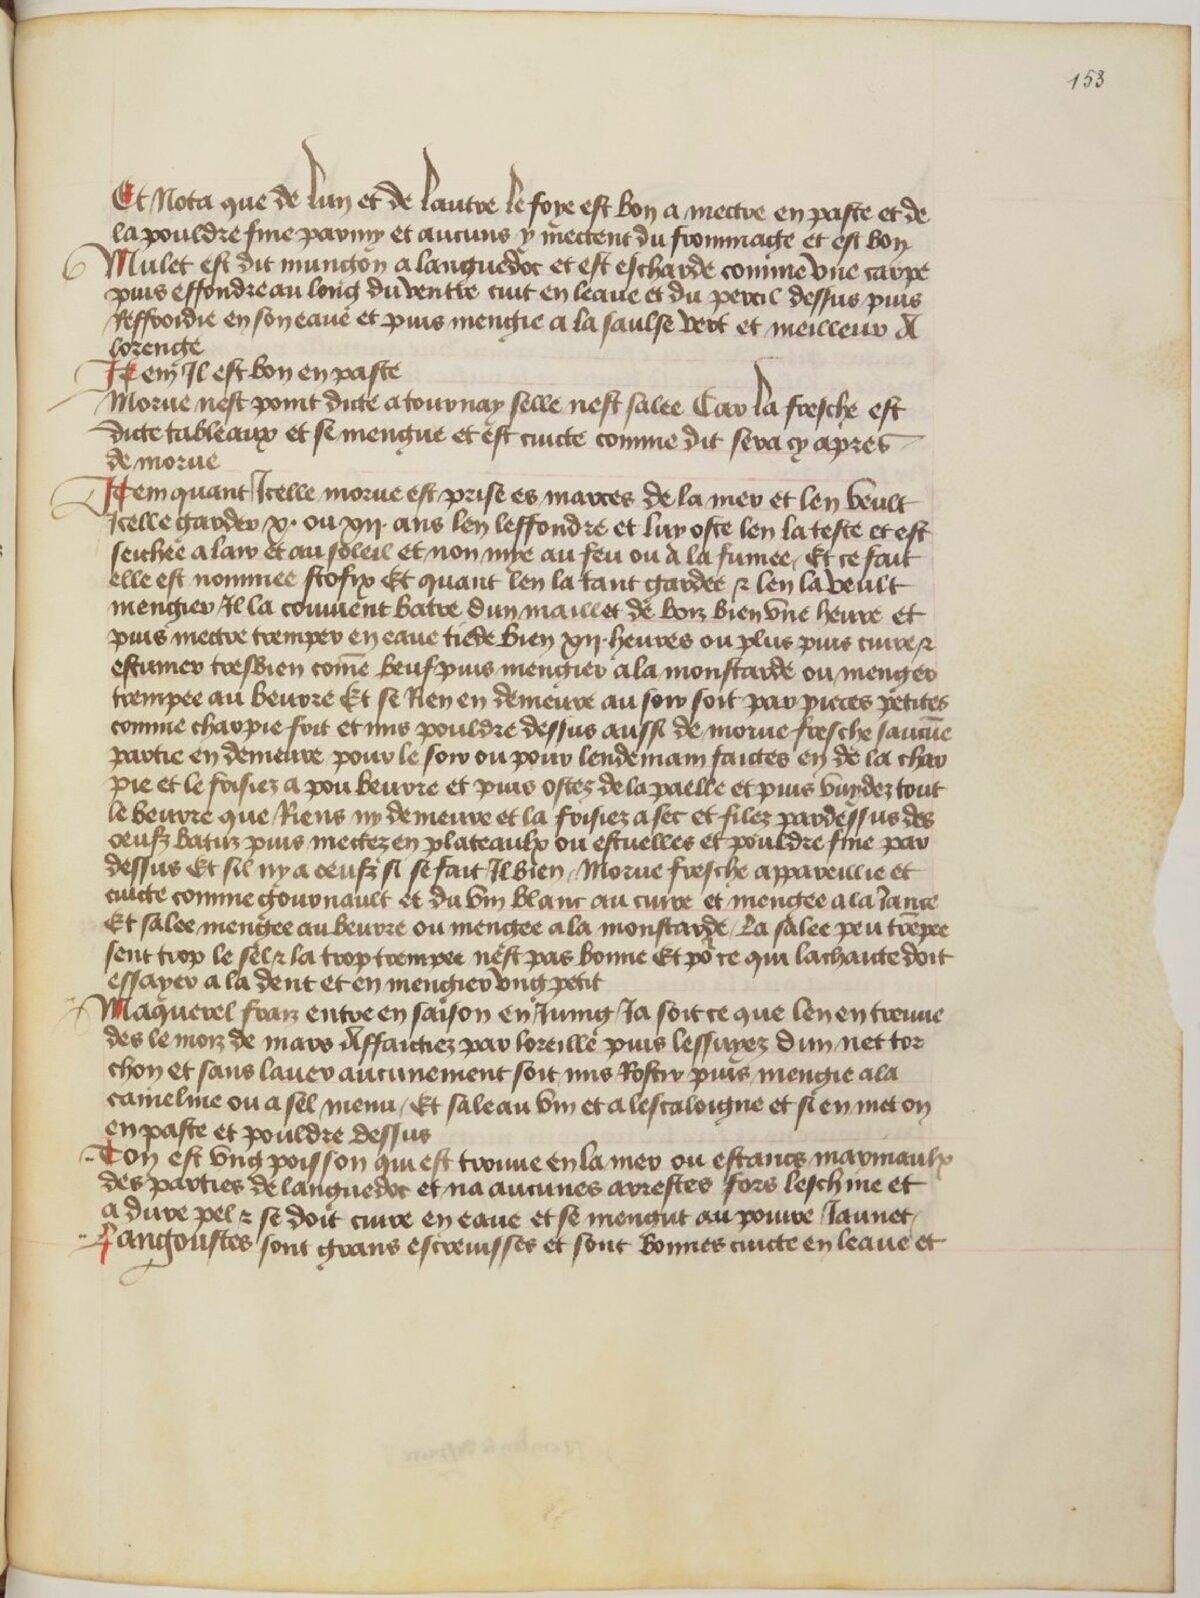 153
Et Nota que de lun et de lautre le foye est bon a mectre en paste et de
la pouldre fine parmy et aucuns y mectent du frommage et est bon
Mulet est dit mungon a languedoc et est eschardé comme vne carpe
puis effondre au long du ventre cuit en leaue et du percil dessus puis
Reffroidie en son eaue et puis mengie a la saulse vert et meilleur A
lorenge
Item Il est bon en paste
Morue nest point dicte a tournay selle nest salee Car la fresche est
dicte tableaux et se mengue et est cuicte comme dit sera cy apres
de morue
Item quant Icelle morue est prise es marces de la mer et len veult
Icelle garder x. ou xii. ans len leffondre et luy oste len la teste et est
seichee a lair et au soleil et non mye au feu ou a la fumee, Et ce fait
elle est nommee stofix Et quant len la tant gardee & len la veult
mengier Il la convient batre dun maillet de boiz bien vne heure et
puis mectre tremper en eaue tiede bien xii. heures ou plus puis cuire &
escumer tresbien cōme beuf puis mengier a la moustarde ou menger
trempee au beurre Et se Rien en demeure au soir soit par pieces petites
comme charpie frit et mis pouldre dessus aussi de morue fresche saucūe
partie en demeure pour le soir ou pour lendemain faictes en de la char
pie et le frisiez a pou beurre et puis ostez de la paelle et puis vuydez tout
le beurre que Riens ny demeure et la frisiez a sec et filez pardessus des
oeufz batuz puis mectez en plateaulx ou escuelles et pouldre fine par
dessus Et sil ny a oeufz si se fait Il bien, Morue fresche appareillie et
cuicte comme gournault et du vin blanc au cuire et mengee a la Jance
Et salee mengee au beurre ou mengee a la moustarde, La salee peu trēpee
sent trop le sel & la trop trempee nest pas bonne Et po^r ce qui lachaite doit
essayer a la dent et en mengier vng petit
Maquerel fraiz entre en saison en Juing Ja soit ce que len en treuue
des le moiz de mars Affaictiez par loreille puis lessuyez dun net tor
chon et sans lauer aucunement soit mis Rostir puis mengie a la
cameline ou a sel menu, Et sale au vin et a lescaloigne et si en met on
en paste et pouldre dessus
Ton est vng poisson qui est trouue en la mer ou estancs marinaulx
des parties de languedoc et na aucunes arrestes fors leschine et
a dure pel & se doit cuire en eaue et se mengut au poiure Jaunet,
Langoustes sont grans escreuisses et sont bonnes cuicte en leaue et